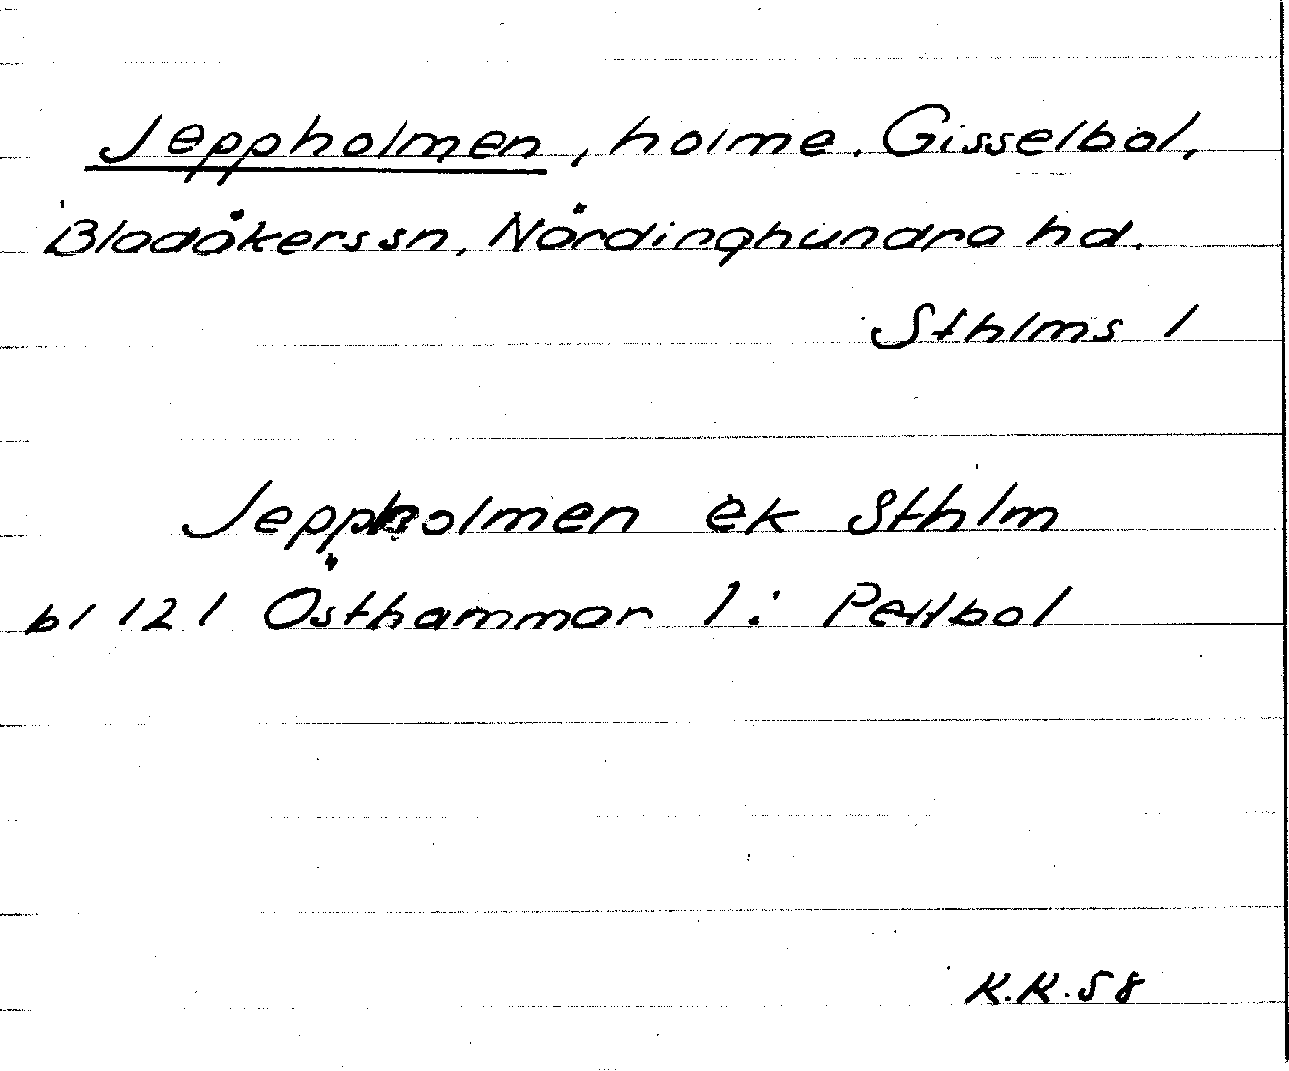 Jeppholmen, holme. Gisselbol,
Bladåkers sn, Närdinghundra hd.
Sthlms l
Jeppholmen ek Sthlm
bl 121 Östhammar 1: Pettbol
K.K. 58